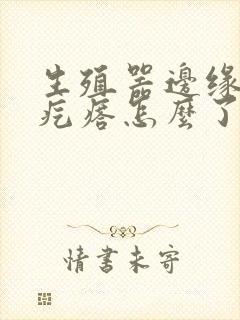 生殖器邊緣
疙瘩怎麼了
情書未寄